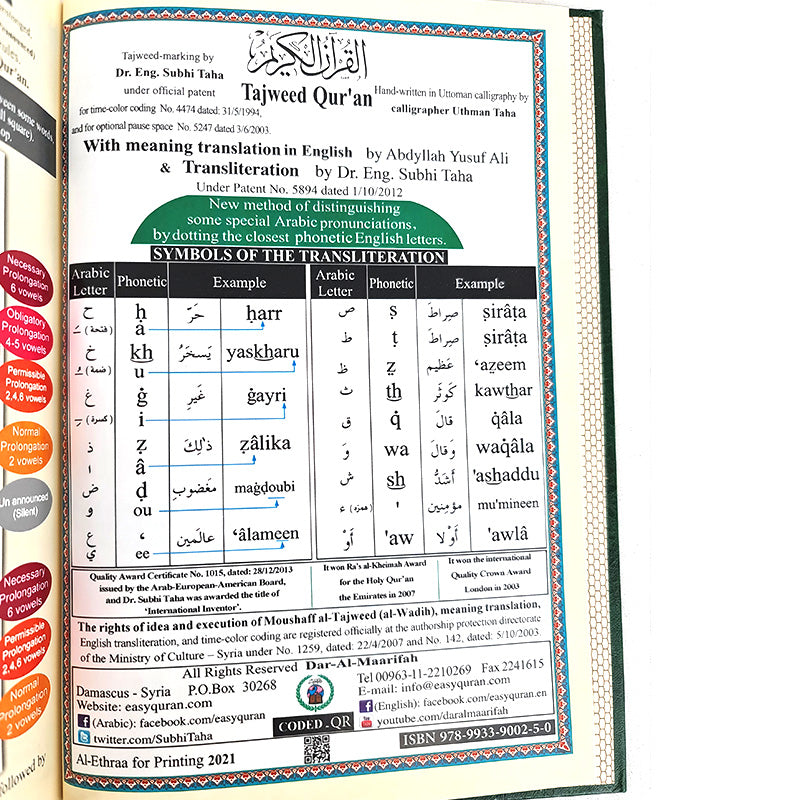 Necessary
Prolongation
6 vowels
Obligatory
Prolongation
4-5 vowels
Permissible
Prolongation
2,4,6 vowels
Normal
Prolongation
2 vowels
Un announced
(Silent)
Necessary
Prolongation
6 vowels
Permissible
Prolongation
2,4,6 vowels
Normal
Prolongation
2 vowels
القرآن الكريم
Tajweed Qur'an
Tajweed-marking by
Dr. Eng. Subhi Taha
under official patent
for time-color coding No. 4474 dated: 31/5/1994,
and for optional pause space No. 5247 dated 3/6/2003.
Hand-written in Uttoman calligraphy by
calligrapher Uthman Taha
With meaning translation in English by Abdyllah Yusuf Ali
& Transliteration by Dr. Eng. Subhi Taha
Under Patent No. 5894 dated 1/10/2012
New method of distinguishing
some special Arabic pronunciations,
by dotting the closest phonetic English letters.
SYMBOLS OF THE TRANSLITERATION
Arabic Letter Phonetic Example
ح ḥ حَرّ ḥarr
(فتحة) ـَ â
خ kh يَسخَرُ yaskharu
(ضمة) ـُ u
غ ġ غَيرِ ġayri
(كسرة) ـِ i
ذ ẓ ذٰلِكَ ẓâlika
ا â
ض ḍ مَغضوبِ maġḍoubi
و ou
ع ‘ عالَمين ‘âlameen
ي ee
Arabic Letter Phonetic Example
ص ṣ صِراطَ ṣirâṭa
ط ṭ صِراطَ ṣirâṭa
ظ ẓ عَظيم ‘aẓeem
ث th كَوثَر kawthar
ق q̇ قالَ q̇âla
وَ wa وَقالَ waq̇âla
ش sh أَشَدُّ 'ashaddu
(همزة) ء ' مؤمنين mu'mineen
أَوْ 'aw أَوْلا 'awlâ
Quality Award Certificate No. 1015, dated: 28/12/2013
issued by the Arab-European-American Board,
and Dr. Subhi Taha was awarded the title of
‘International Inventor’.
It won Ra's al-Kheimah Award
for the Holy Qur'an
the Emirates in 2007
It won the international
Quality Crown Award
London in 2003
The rights of idea and execution of Moushaff al-Tajweed (al-Wadih), meaning translation,
English transliteration, and time-color coding are registered officially at the authorship protection directorate
of the Ministry of Culture – Syria under No. 1259, dated: 22/4/2007 and No. 142, dated: 5/10/2003.
All Rights Reserved Dar-Al-Maarifah
Damascus - Syria P.O.Box 30268
Website: easyquran.com
(Arabic): facebook.com/easyquran
twitter.com/SubhiTaha
Al-Ethraa for Printing 2021
CODED - QR
Tel 00963-11-2210269 Fax 2241615
E-mail: info@easyquran.com
(English): facebook.com/easyquran.en
youtube.com/daralmaarifah
ISBN 978-9933-9002-5-0